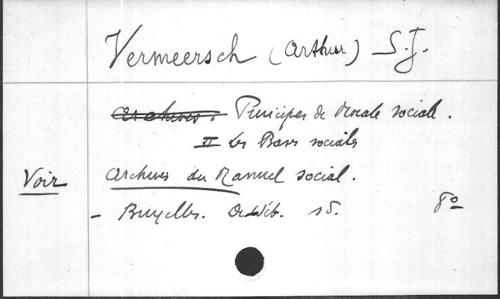 Vermeersch (Arthur) S.J.
Archives : Principes de Morale sociale.
II Les Bases sociales
Voir Archives du Manuel social.
- Bruxelles. 8º